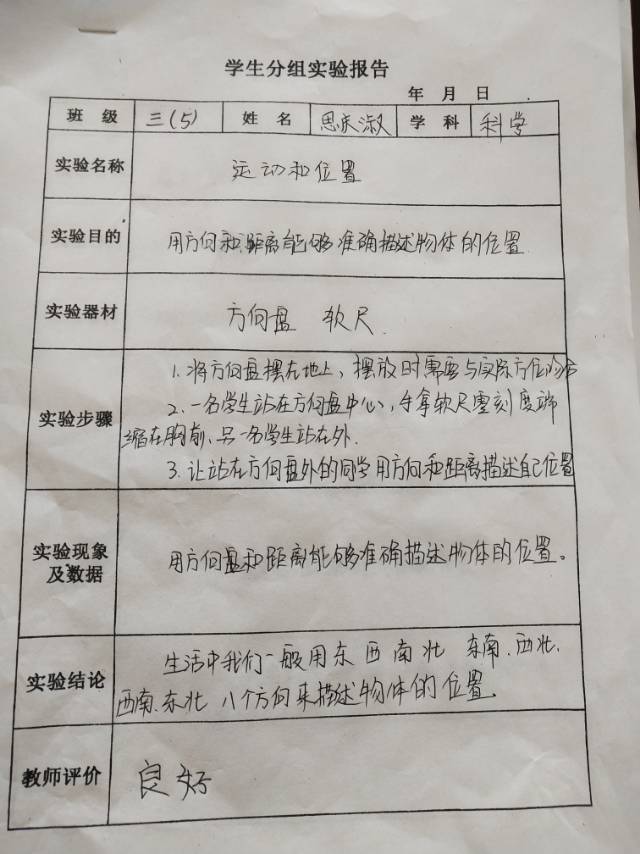 学生分组实验报告
年 月 日
班 级 三(5) 姓 名 思庆淑 学 科 科学
实验名称 运动和位置
实验目的 用方向和距离能够准确描述物体的位置
实验器材 方向盘 软尺
1.将方向盘摆在地上,摆放时需要与实际方位吻合
实验步骤 2.一名学生站在方向盘中心,手拿软尺零刻度端
缩在胸前、另一名学生站在外.
3.让站在方向盘外的同学用方向和距离描述自己位置
实验现象及数据 用方向盘和距离能够准确描述物体的位置。
生活中我们一般用东 西 南 北 东南、西北、
实验结论 西南、东北 八个方向来描述物体的位置。
教师评价 良好